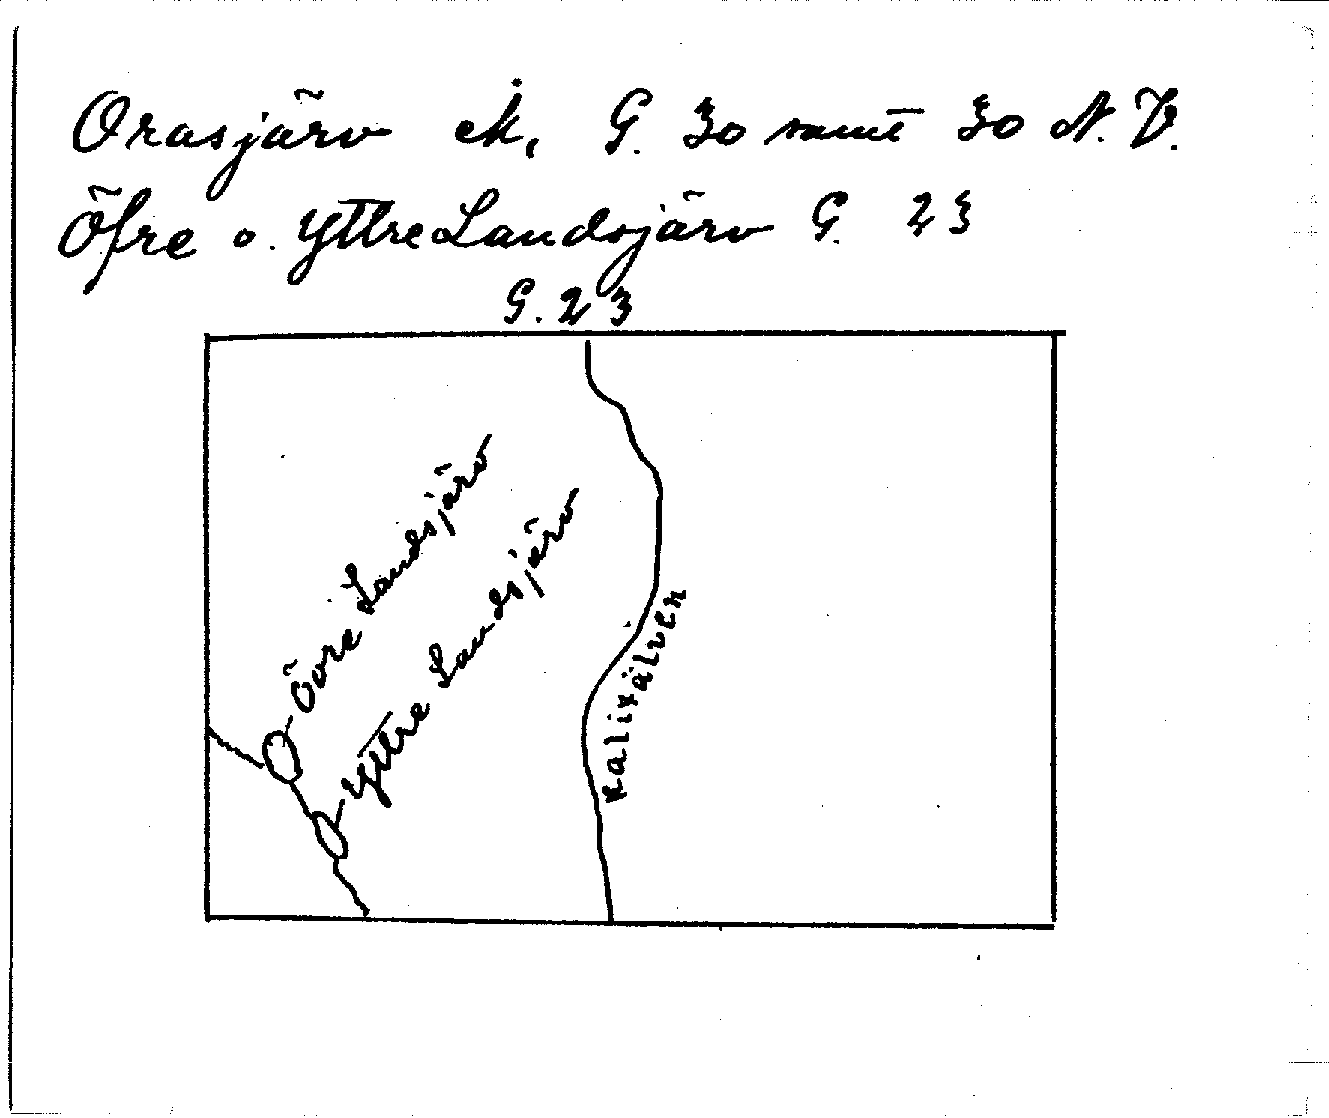 Orasjärv M, G. 30 samt 30 N.V.
Öfre o. Yttre Landsjärv G. 23
G. 23
Övre Landsjärv
Yttre Landsjärv
Kalixälven